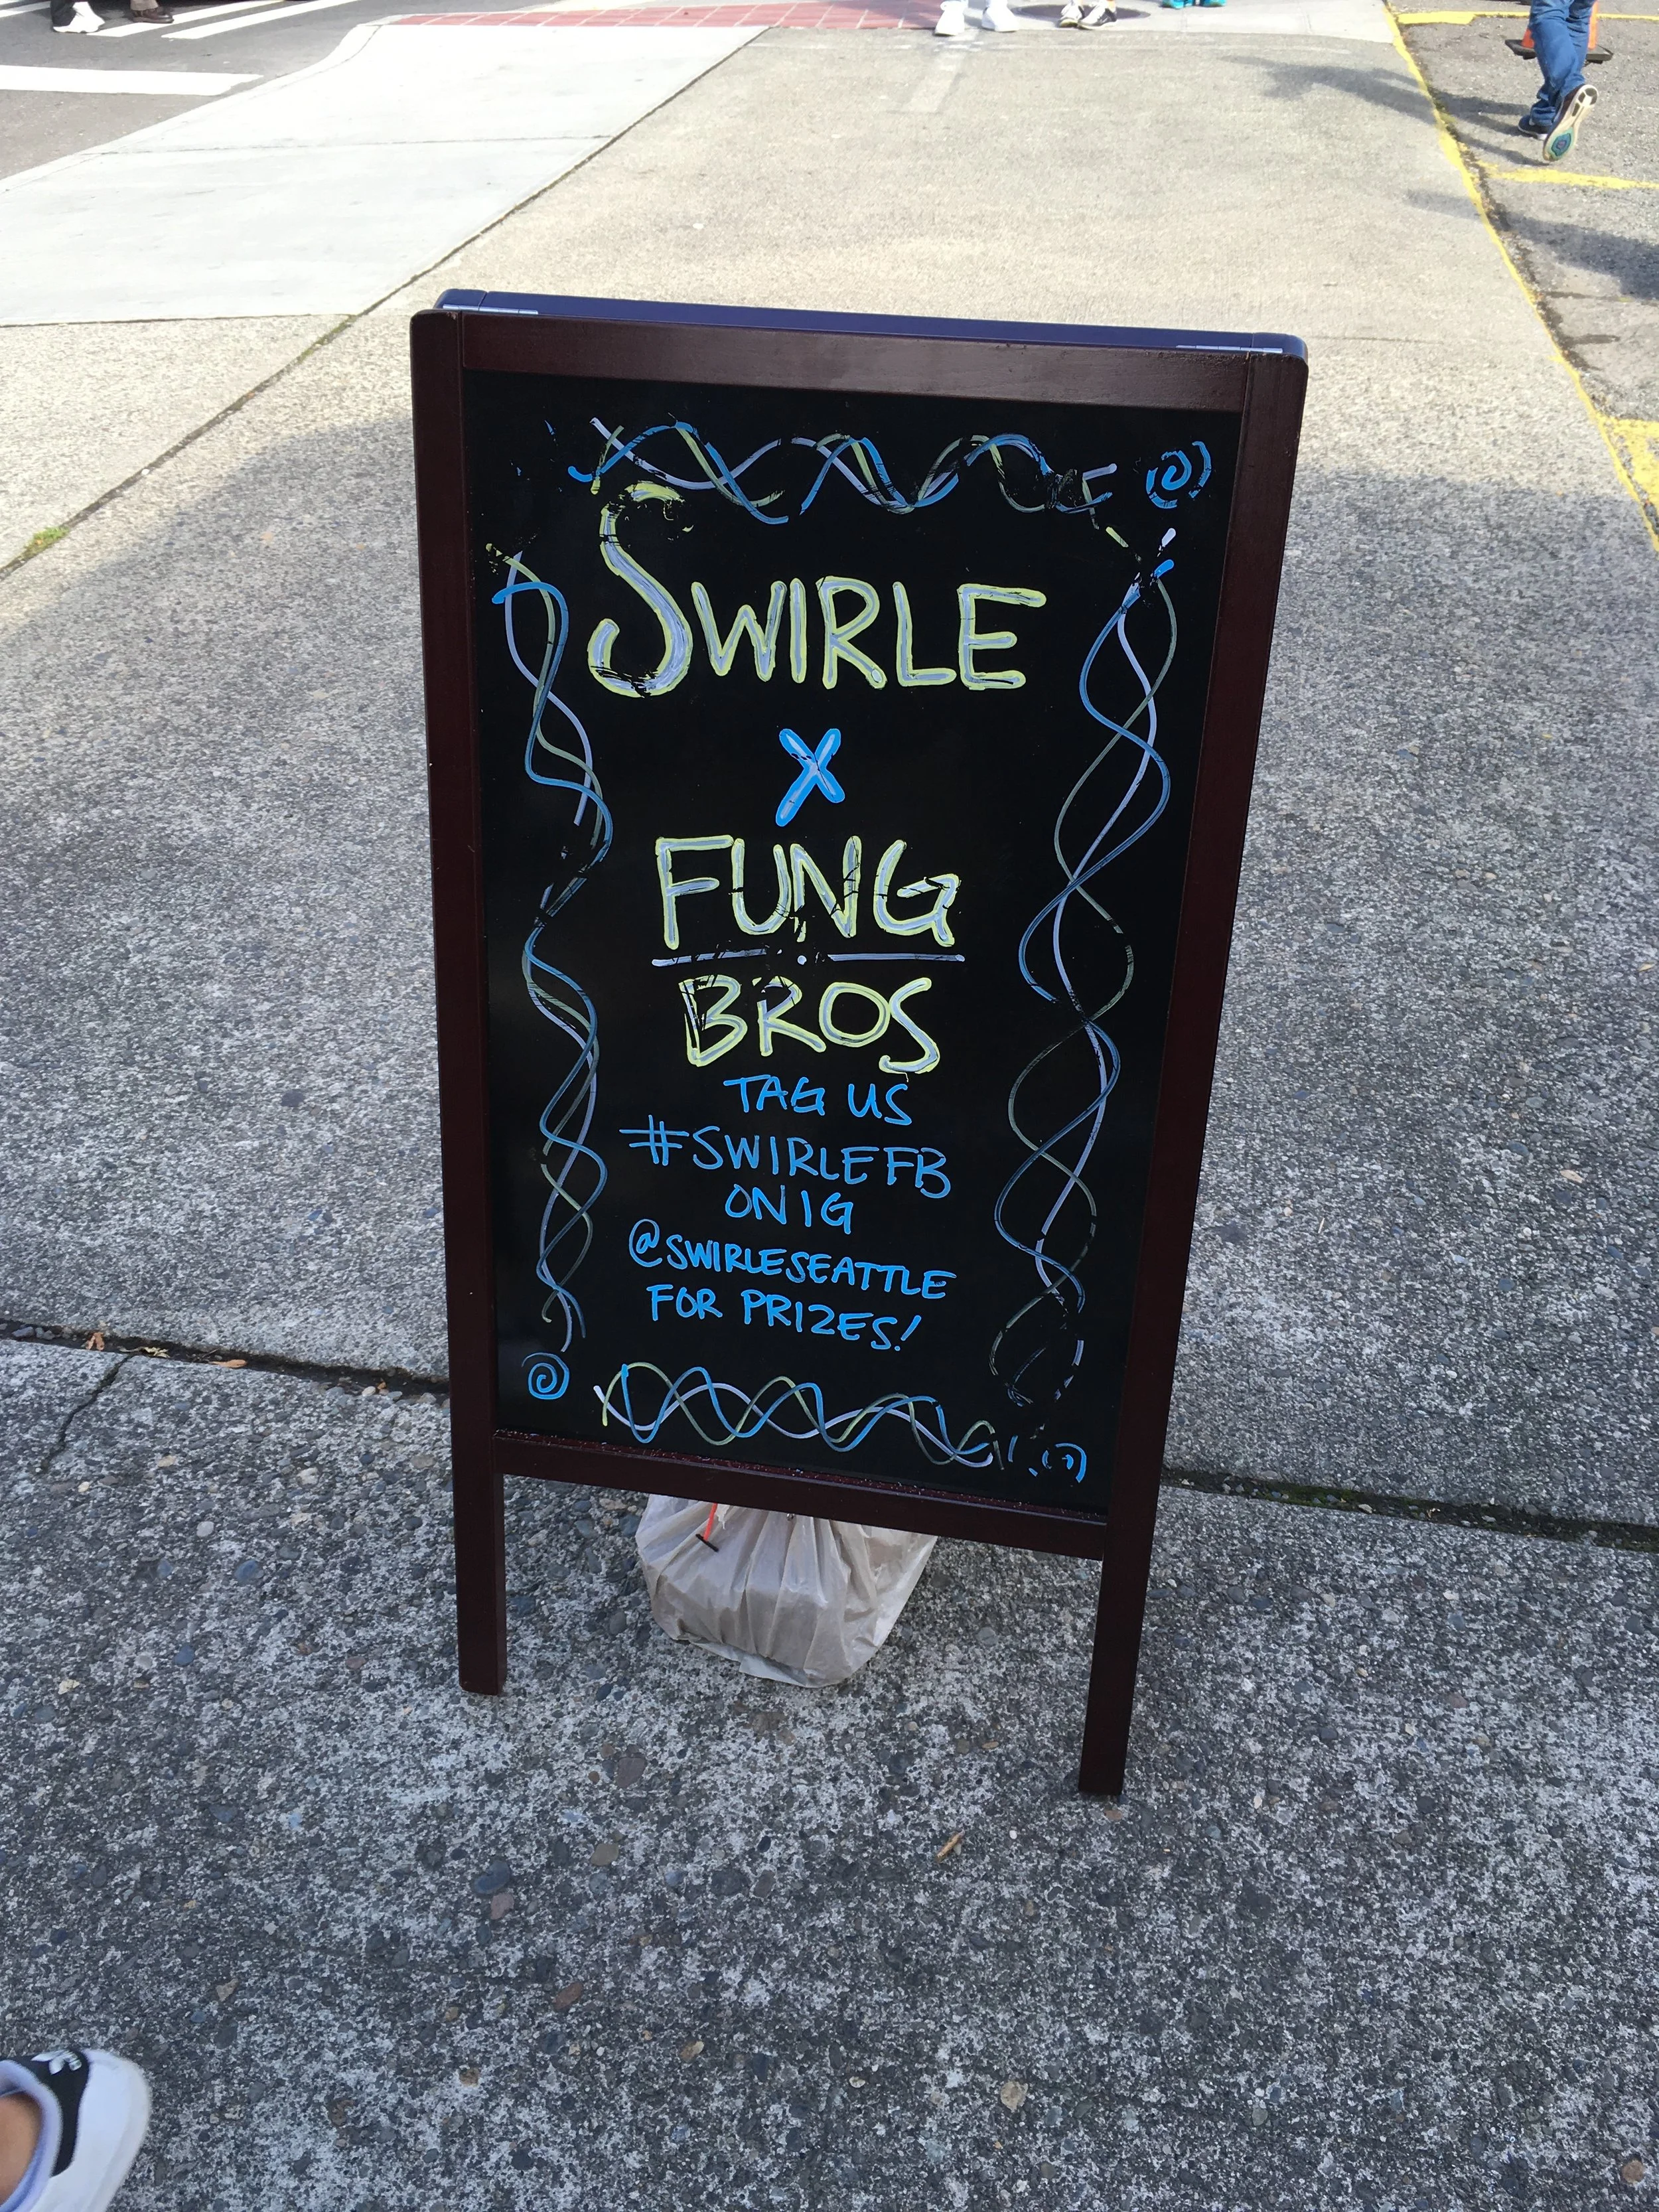 SWIRLE
X
FUNG
BROS
TAG US
#SWIRLEFB
ON IG
@SWIRLESEATTLE
FOR PRIZES!